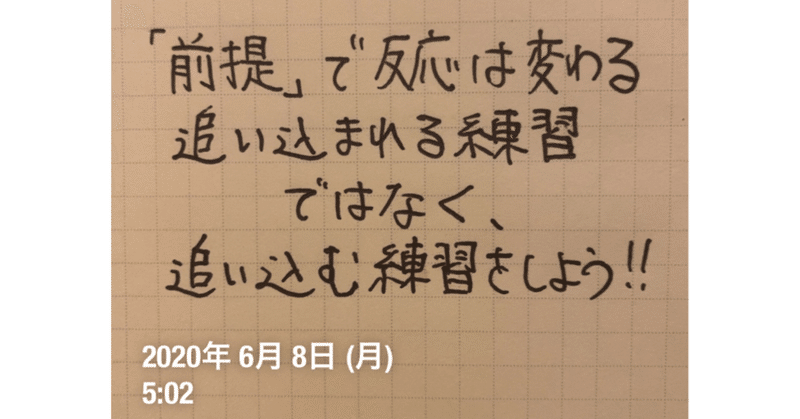 「前提」で反応は変わる
追い込まれる練習
ではなく、
追い込む練習をしよう!!
2020年 6月 8日 (月)
5:02